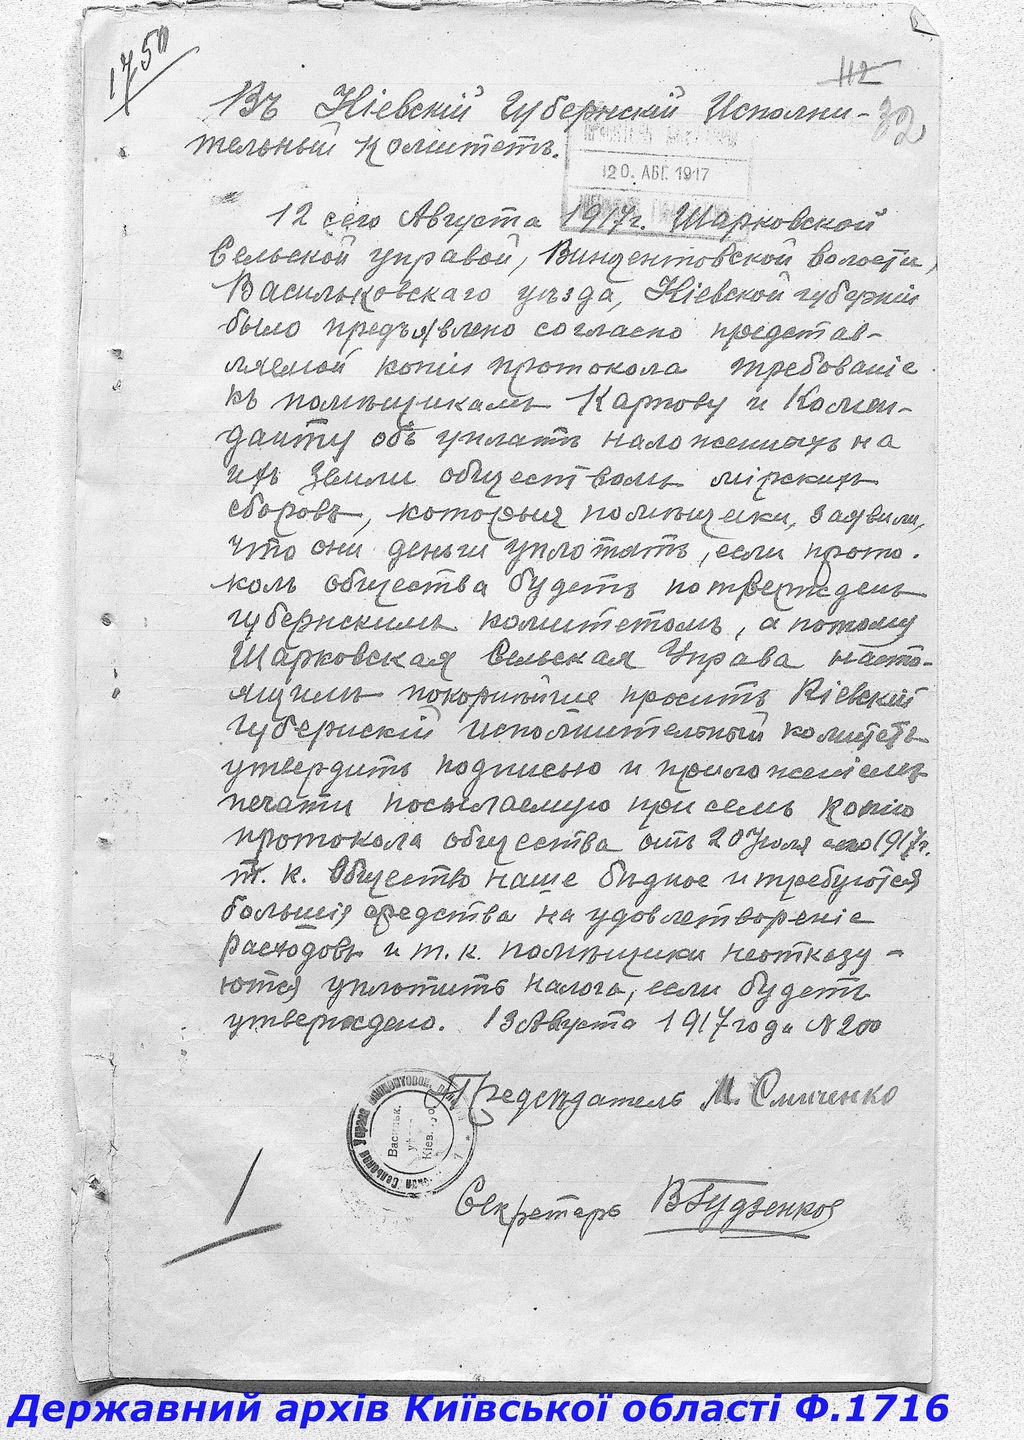 1750
112
32
Въ Кіевскій Губернскій Исполни-
тельный комитетъ.
20. АВГ. 1917
12 сего Августа 1917г. Шарковской
Сельской управой, Винцентовской волости,
Васильковскаго уѣзда, Кіевской губерніи
было предъявлено согласно представ-
ляемой копіи протокола требованіе
къ помѣщикамъ Карпову и Комен-
данту объ уплатѣ наложенныхъ на
ихъ земли обществомъ мірскихъ
сборовъ, которыя помѣщики, заявили,
что они деньги уплотятъ, если прото-
колъ общества будетъ потвержденъ
губернскимъ комитетомъ, а потому
Шарковская Сельская Управа насто-
ящимъ покорнѣйше проситъ Кіевскій
губернскій исполнительный комитетъ
утвердить подписью и приложеніемъ
печати посылаемую при семъ копію
протокола общества отъ 20 Іюля сего 1917г.
т. к. Общество наше бѣдное и требуются
большія средства на удовлетвореніе
расходовъ и т. к. помѣщики неотказу-
ются уплотить налога, если будетъ
утверждено. 13 Августа 1917 года N 200
Предсѣдатель М. Смиченко
Васильк.
Кіев.
Секретарь В Гудзенко
Державний архів Київської області Ф.1716